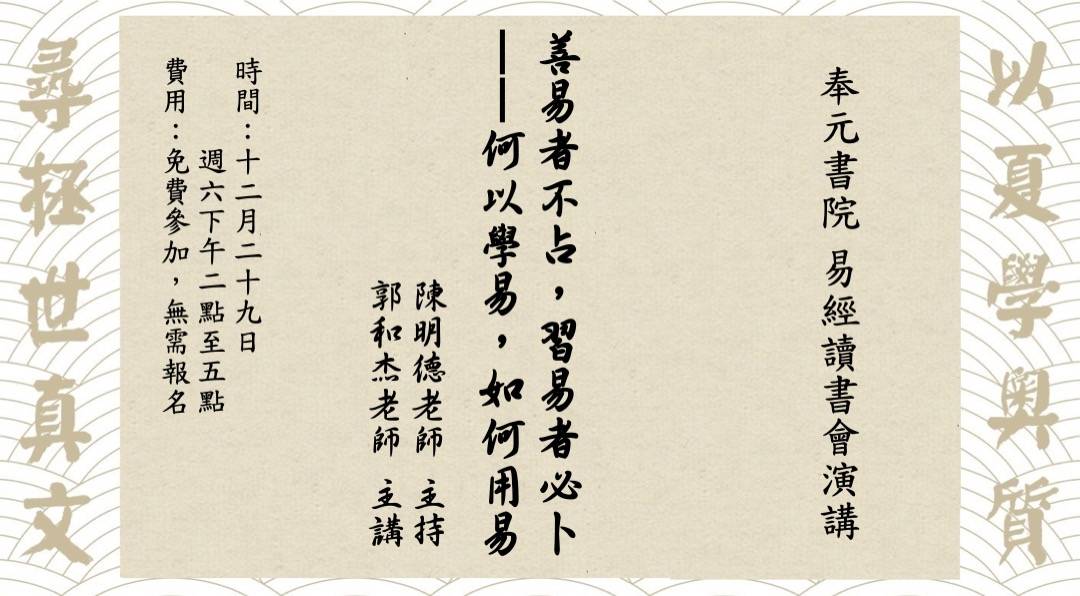 以夏學奧質
奉元書院 易經讀書會演講
善易者不占，習易者必卜
——何以學易，如何用易
陳明德老師 主持
郭和杰老師 主講
時間：十二月二十九日
週六下午二點至五點
費用：免費參加，無需報名
尋拯世真文